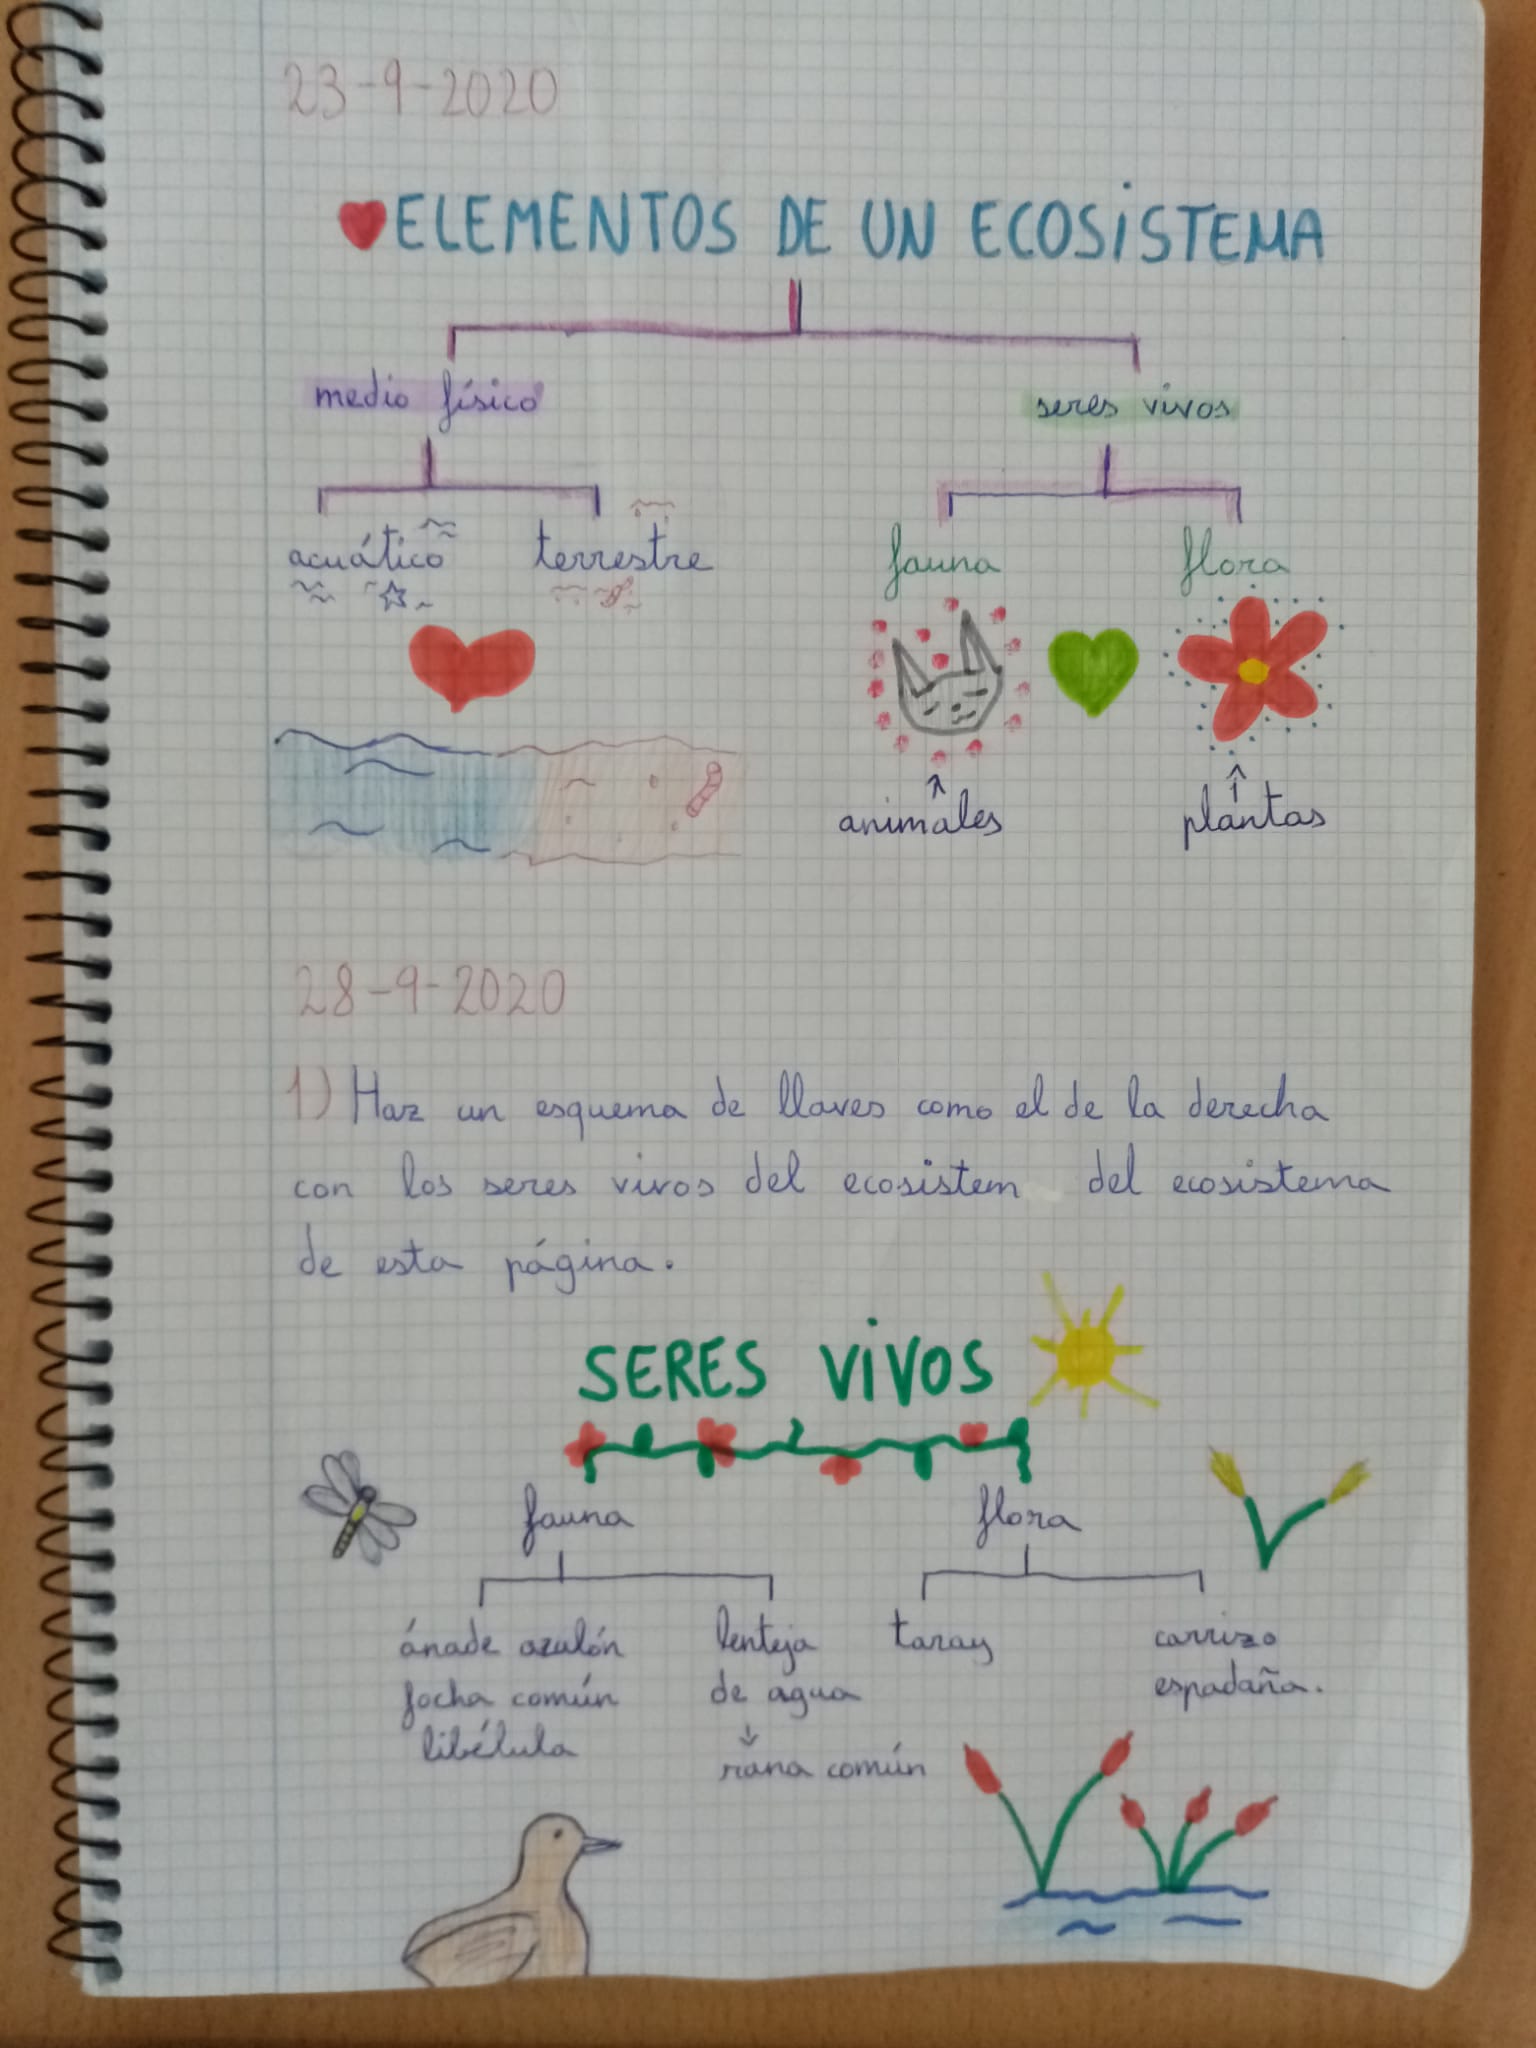 23-9-2020
ELEMENTOS DE UN ECOSISTEMA
medio físico
seres vivos
acuático
terrestre
fauna
flora
animales
plantas
28-9-2020
1) Haz un esquema de llaves como el de la derecha
con los seres vivos del ecosistem del ecosistema
de esta página.
SERES VIVOS
fauna
flora
ánade azulón
focha común
libélula
lenteja
de agua
rana común
taray
carrizo
espadaña.